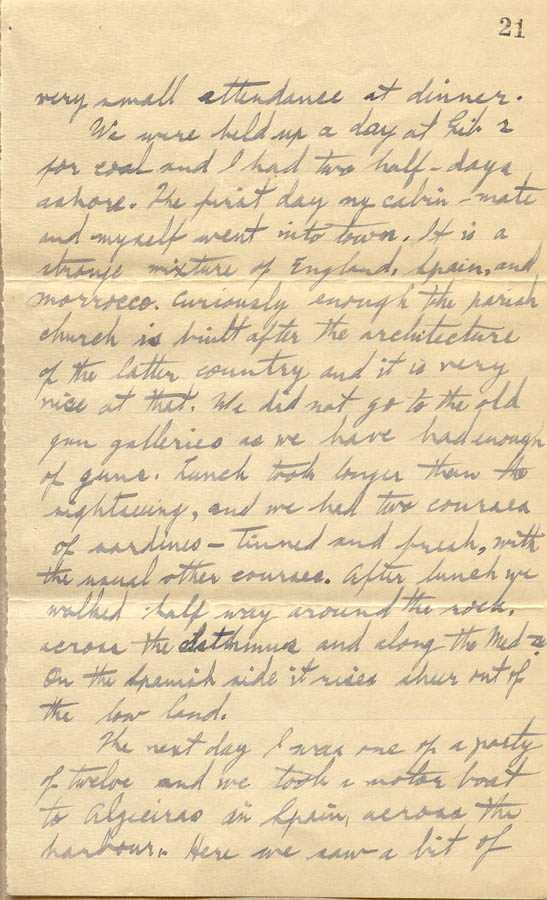 21
very small attendance at dinner.
We were held up a day at Gib r
for coal and I had two half-days
ashore. The first day my cabin-mate
and myself went into town. It is a
strange mixture of England, Spain, and
morrocco. Curiously enough the parish
church is built after the architecture
of the latter country and it is very
nice at that. We did not go to the old
gun galleries as we have had enough
of guns. Lunch took longer than the
sightseeing, and we had two courses
of sardines - tinned and fresh, with
the usual other courses. After lunch we
walked half way around the rock,
across the Isthmus and along the Med
On the Spanish side it rises sheer out of
the low land.
The next day I was one of a party
of twelve and we took a motor boat
to Algieiras in Spain, across the
harbour. Here we saw a bit of